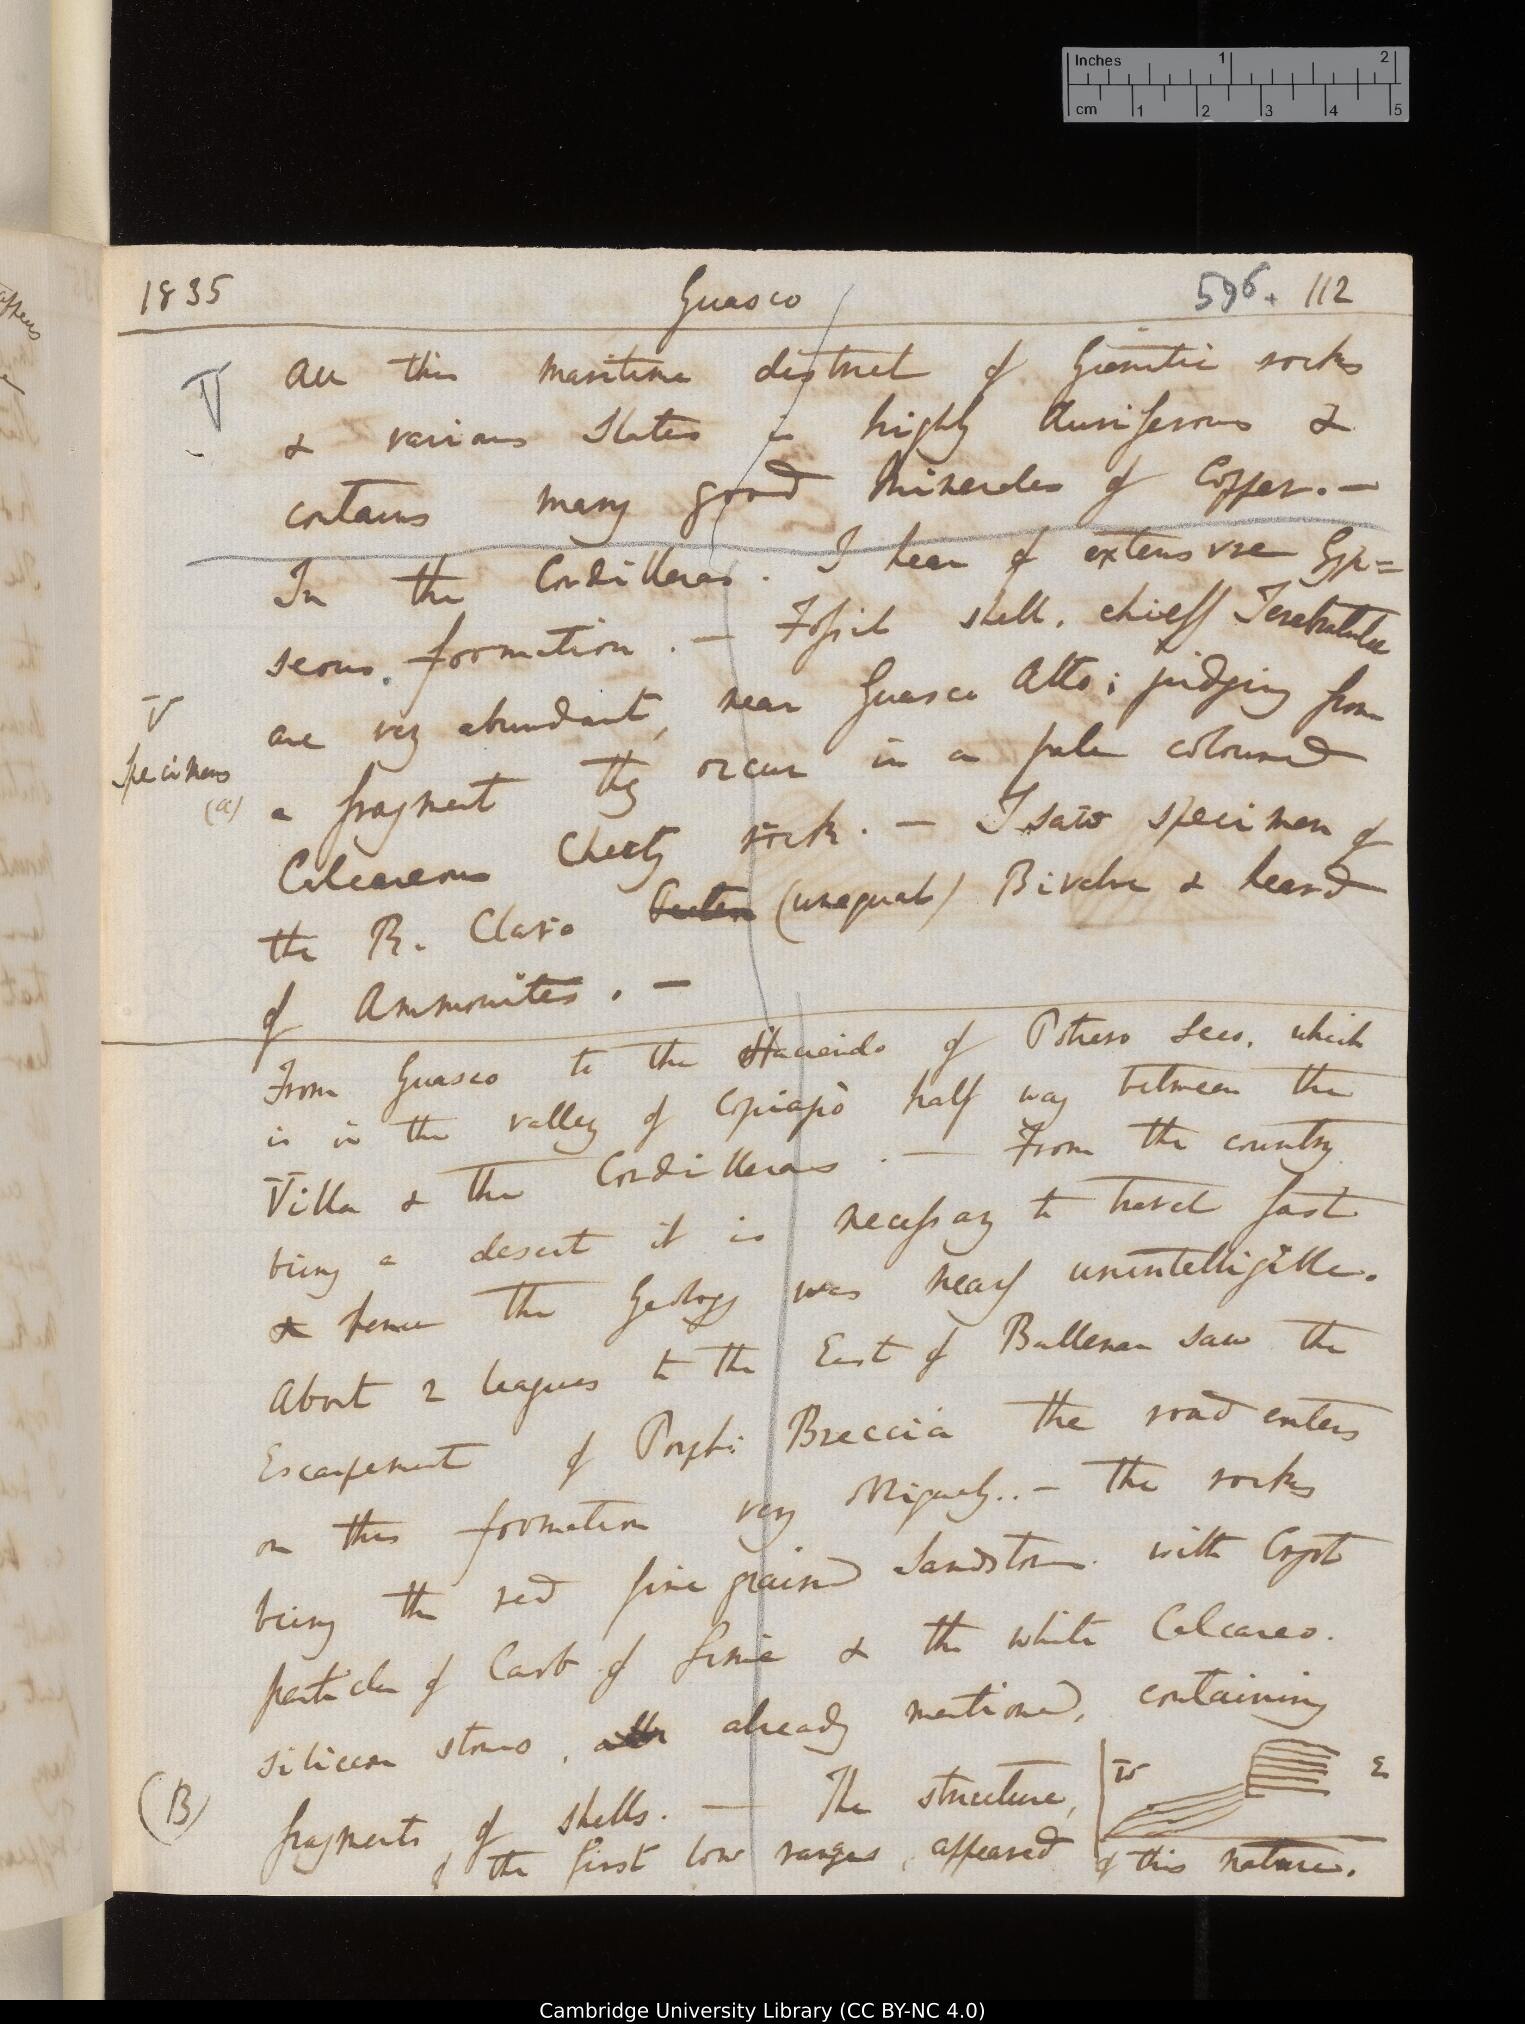 Inches 1 2
cm 1 2 3 4 5
1835 Guasco 596. 112
V All this maritime district of Granitic rocks
& various Slates is highly Auriferous &
contains many good Minerales of Copper. —
In the Cordilleras. I hear of extensive Gyp=
seous formation. — Fossil shell, chiefly Terebratulæ
V
are very abundant, near Guasco Alto; judging from
Specimens
(a)
a fragment they occur in a pale coloured
Calcareous Cherty rock. — I saw specimen of
the R. Claro (unequal) Bivalve & heard
of Ammonites. —
From Guasco to the Haciendo of Potrero Seco, which
is in the valley of Copiapò half way between the
Villa & the Cordilleras. — From the country
being a desert it is necessary to travel fast
& hence the Geology was nearly unintelligible.
About 2 leagues to the East of Ballenar saw the
Escarpement of Porph: Breccia the road enters
on this formation very obliquely.. — The rocks
being the red fine grained Sandstone with Cryst
particles of Carb of Lime & the white Calcareo.
siliceous stones, already mentioned, containing
(B)
fragments of shells. — The structure,
W E
of the first low ranges, appeared of this nature.
Cambridge University Library (CC BY-NC 4.0)